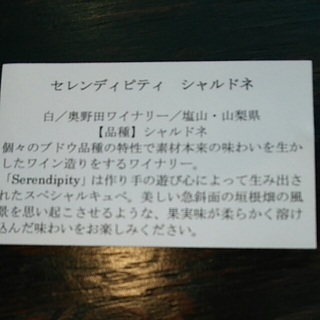 セレンディピティ　シャルドネ
白／奥野田ワイナリー／塩山・山梨県
【品種】シャルドネ
個々のブドウ品種の特性で素材本来の味わいを生か
したワイン造りをするワイナリー。
「Serendipity」は作り手の遊び心によって生み出さ
れたスペシャルキュベ。美しい急斜面の垣根畑の風
景を思い起こさせるような、果実味が柔らかく溶け
込んだ味わいをお楽しみください。